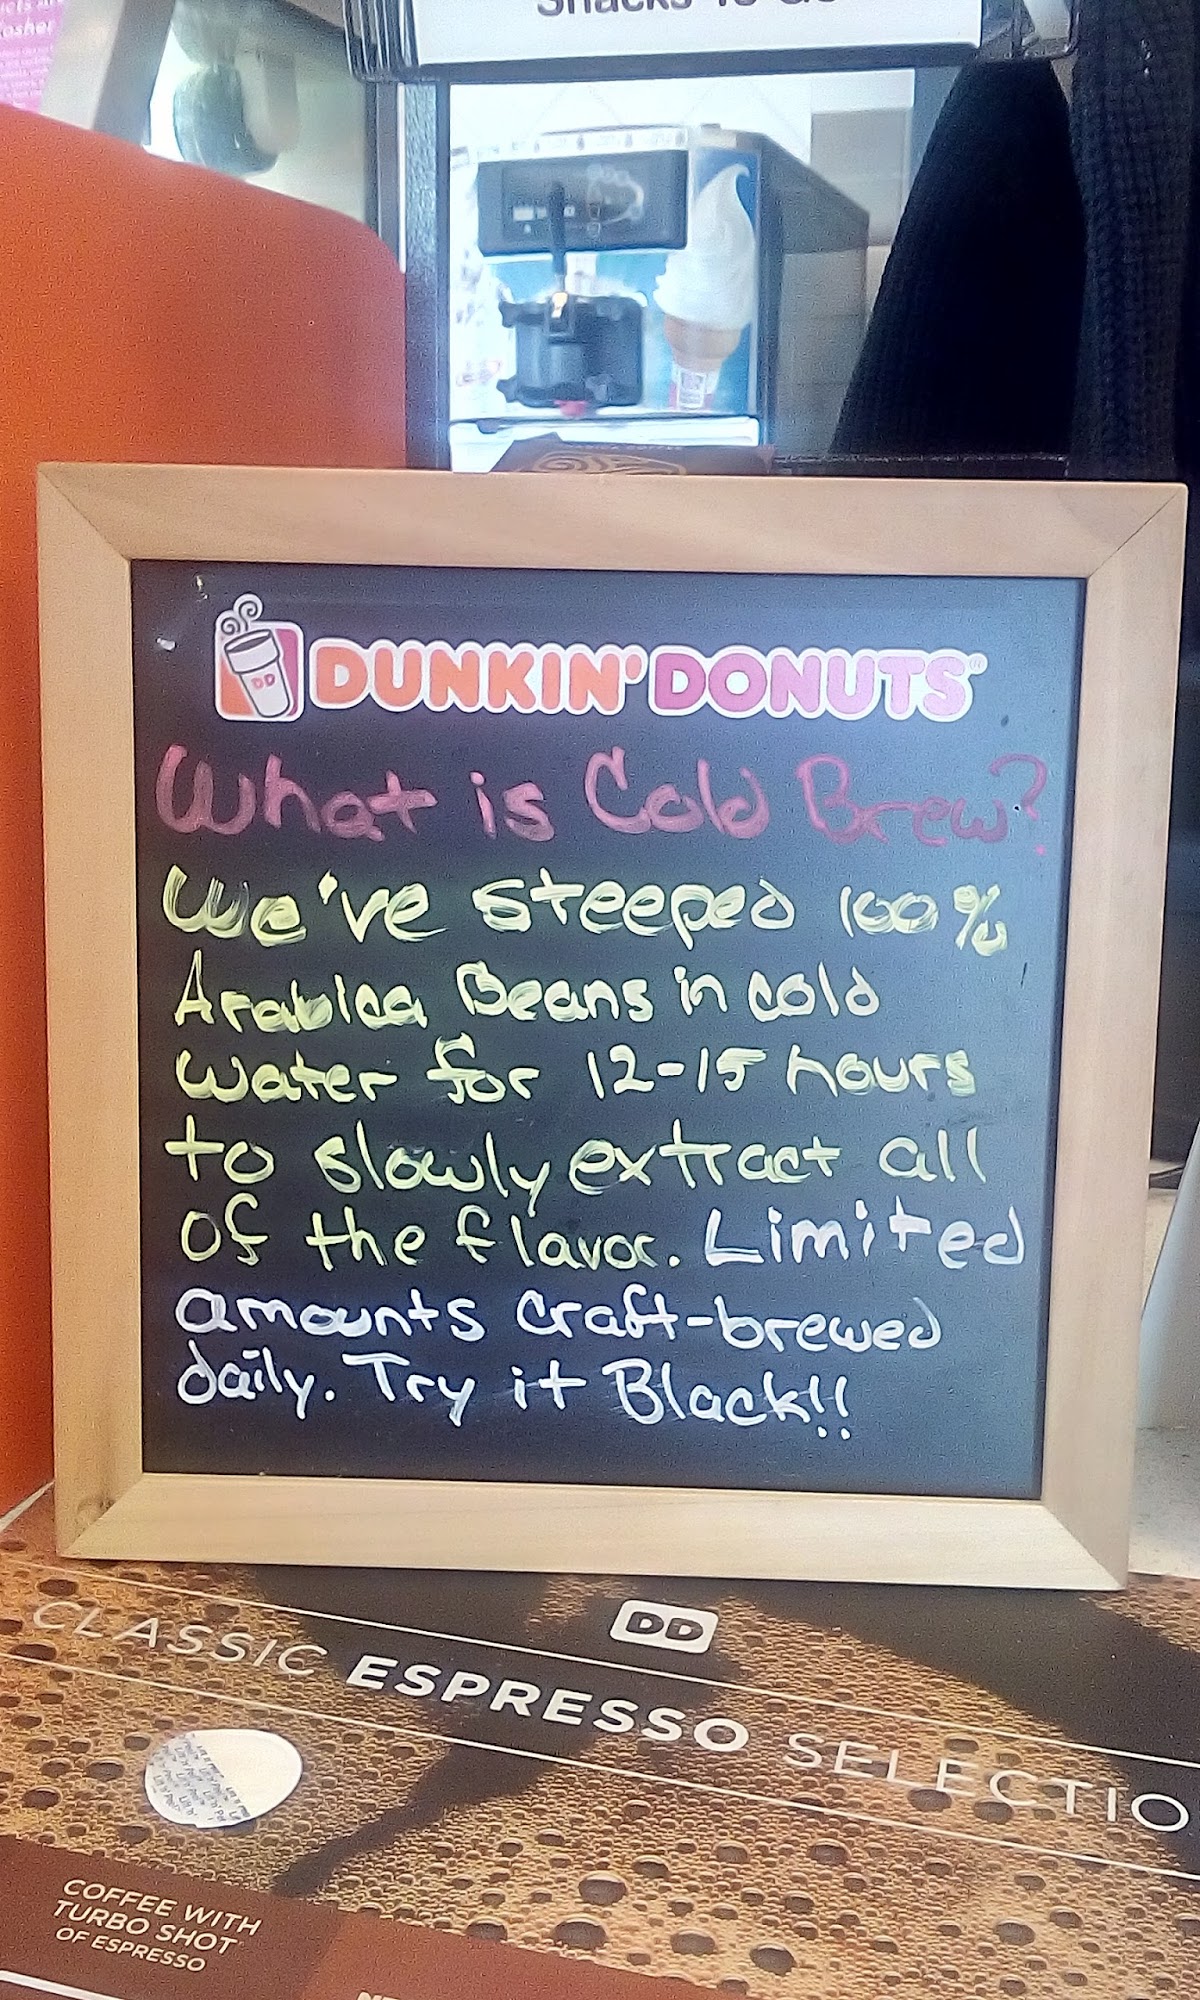 Snacks To Go
DUNKIN' DONUTS®
What is Cold Brew?
We've steeped 100%
Arabica Beans in cold
water for 12-15 hours
to slowly extract all
of the flavor. Limited
amounts craft-brewed
daily. Try it Black!!
DD
CLASSIC ESPRESSO SELECTIO
COFFEE WITH
TURBO SHOT
OF ESPRESSO